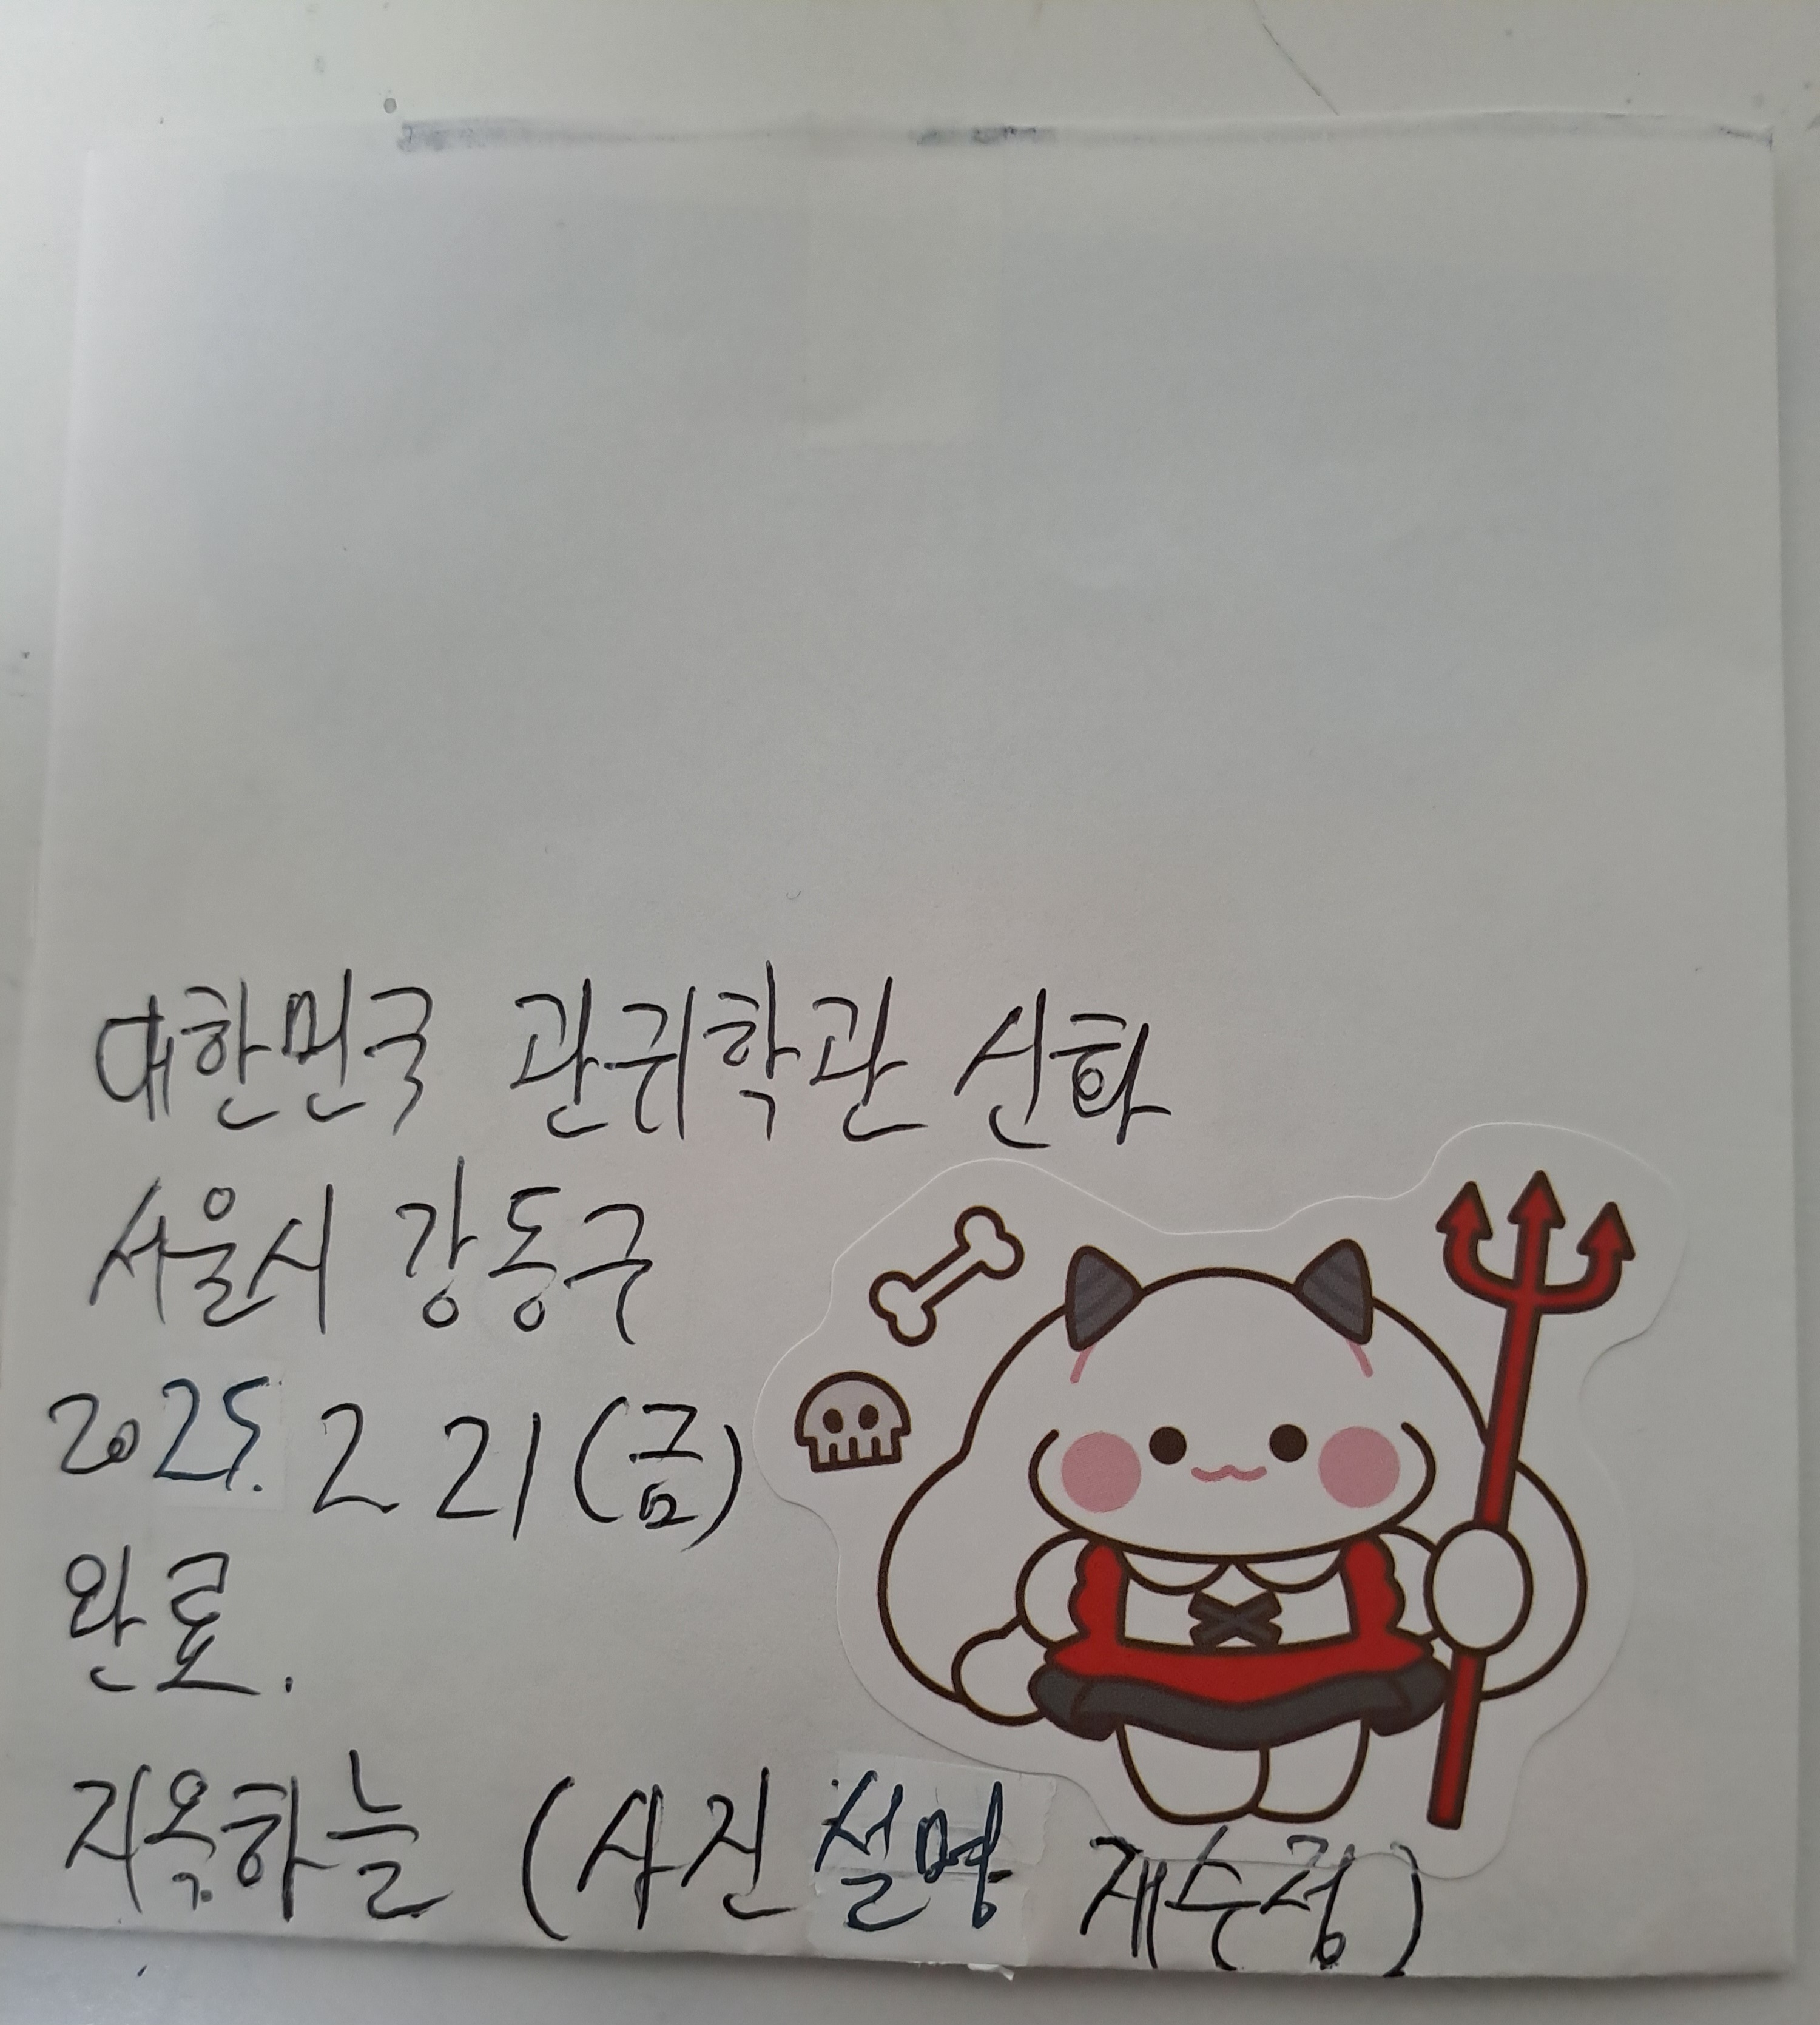 대한민국 관귀학관 신화
서울시 강동구
2025. 2 21 (금)
완료.
지옥하늘 (사진 설명 재수정)